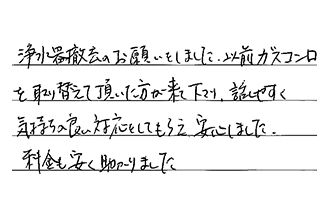 浄水器撤去のお願いをしました。以前ガスコンロ
を取り替えて頂いた方が来て下さり、話しやすく
気持ちの良い対応をしてもらえ、安心しました。
料金も安く助かりました